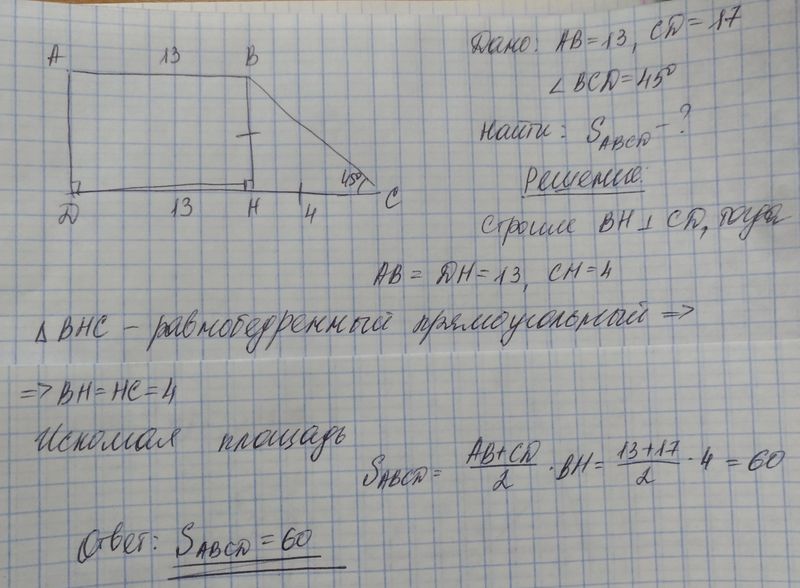 A 13 B
45°
D 13 H 4 C
Дано: AB = 13, CD = 17
∠ BCD = 45°
Найти: S_ABCD - ?
Решение:
Строим BH ⊥ CD, тогда
AB = DH = 13, CH = 4
△ BHC - равнобедренный прямоугольный =>
=> BH = HC = 4
Искомая площадь
S_ABCD = (AB + CD)/2 · BH = (13 + 17)/2 · 4 = 60
Ответ: S_ABCD = 60